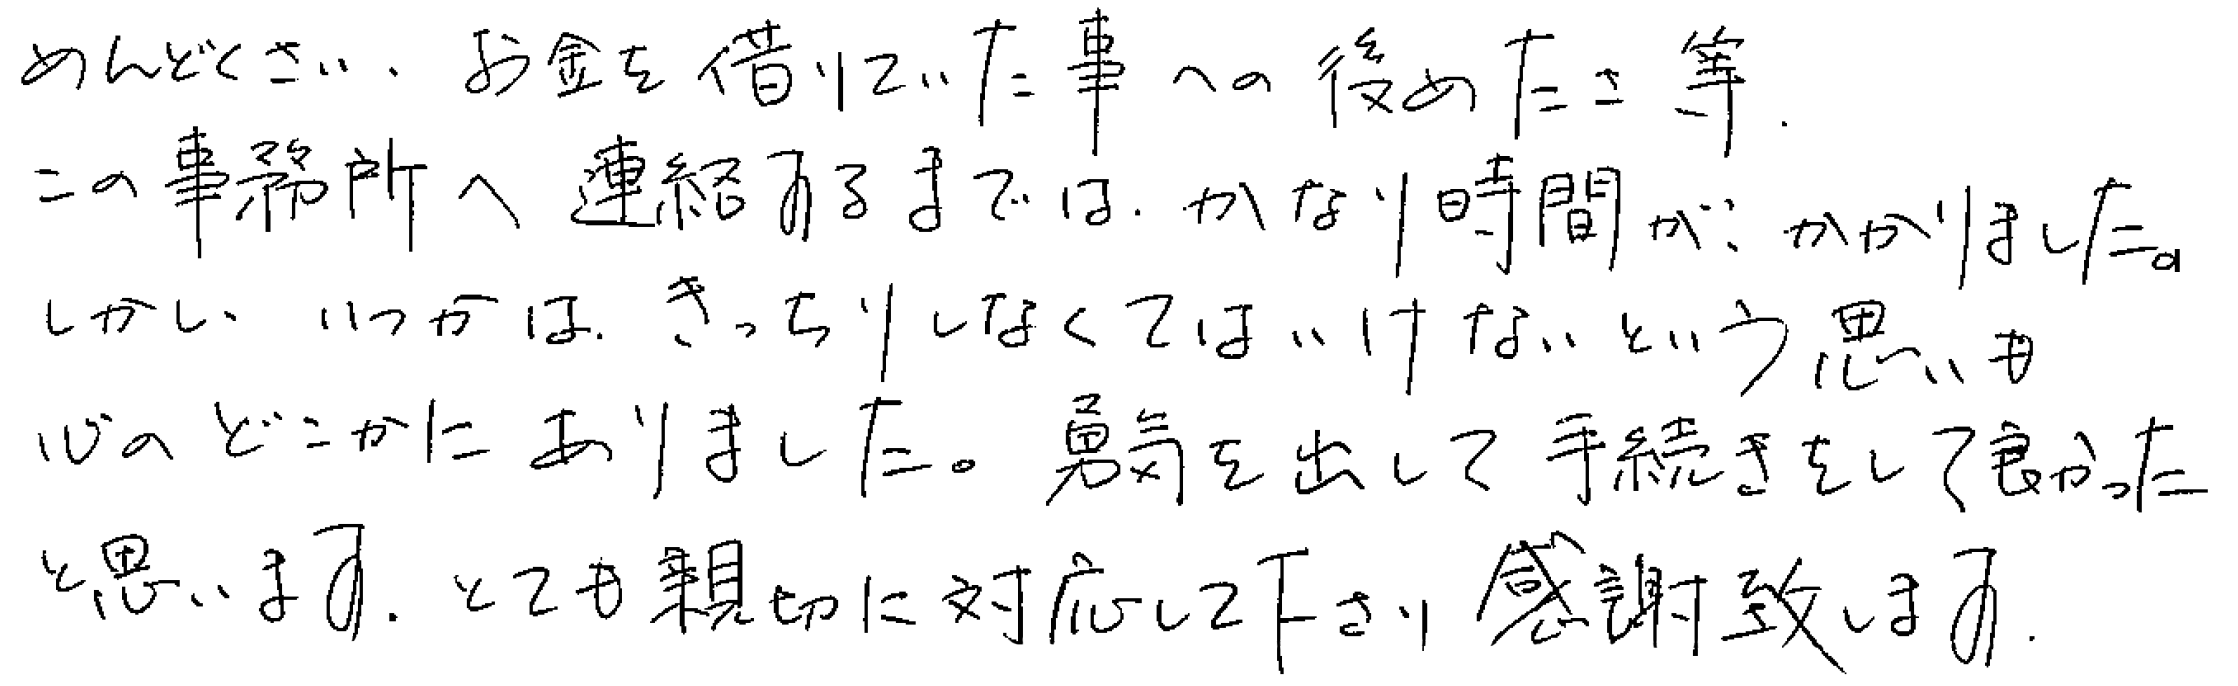 めんどくさい、お金を借りていた事への後めたさ等、
この事務所へ連絡するまでは、かなり時間が、かかりました。
しかし、いつかは、きっちりしなくてはいけないという思いも
心のどこかにありました。勇気を出して手続きをして良かった
と思います。とても親切に対応して下さり感謝致します。